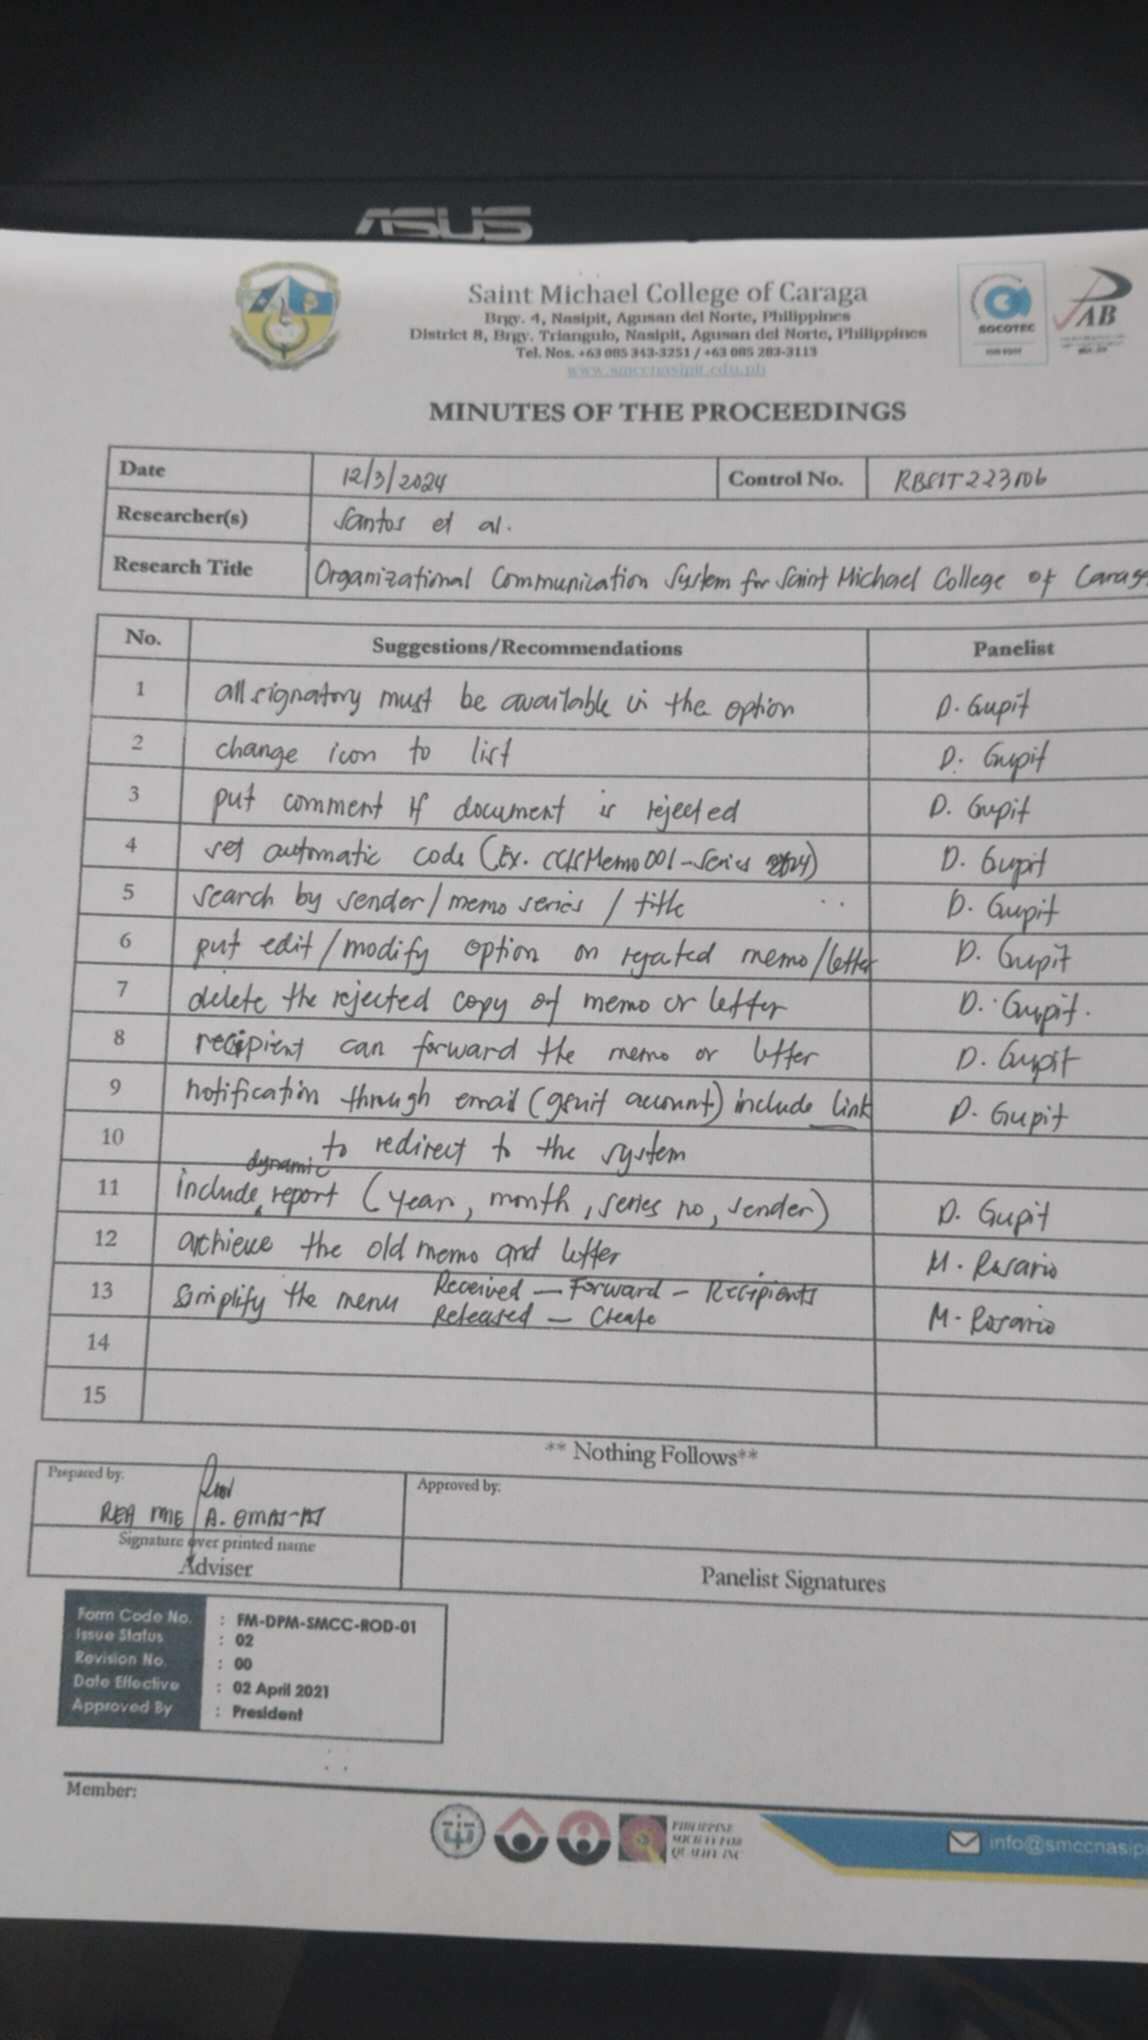 ASUS
Saint Michael College of Caraga
Brgy. 4, Nasipit, Agusan del Norte, Philippines
District 8, Brgy. Triangulo, Nasipit, Agusan del Norte, Philippines
Tel. Nos. +63 085 343-3251 / +63 085 283-3113
www.smccnasipit.edu.ph
SOCOTEC
PAB
MINUTES OF THE PROCEEDINGS
Date 12/3/2024 Control No. RBSIT223106
Researcher(s) Santos et al.
Research Title Organizational Communication System for Saint Michael College of Carag
No. Suggestions/Recommendations Panelist
1 all signatory must be available in the option D. Gupit
2 change icon to list D. Gupit
3 put comment if document is rejected D. Gupit
4 set automatic code (Ex. CCISMemo001-Series 2024) D. Gupit
5 search by sender/memo series / title D. Gupit
6 put edit/modify option on rejected memo/letter D. Gupit
7 delete the rejected copy of memo or letter D. Gupit.
8 recipient can forward the memo or letter D. Gupit
9 notification through email (gsuit account) include link D. Gupit
10 to redirect to the system
11 include dynamic report (year, month, series no, sender) D. Gupit
12 achieve the old memo and letter M. Rosario
13 simplify the menu Received - Forward - Recipients M. Rosario
Released - Create
14
15
** Nothing Follows**
Prepared by: Approved by:
REA MIE A. OMAS-AS
Signature over printed name
Adviser Panelist Signatures
Form Code No. : FM-DPM-SMCC-ROD-01
Issue Status : 02
Revision No. : 00
Date Effective : 02 April 2021
Approved By : President
Member:
PHILIPPINE
SOCIETY FOR
QUALITY INC
info@smccnasipi